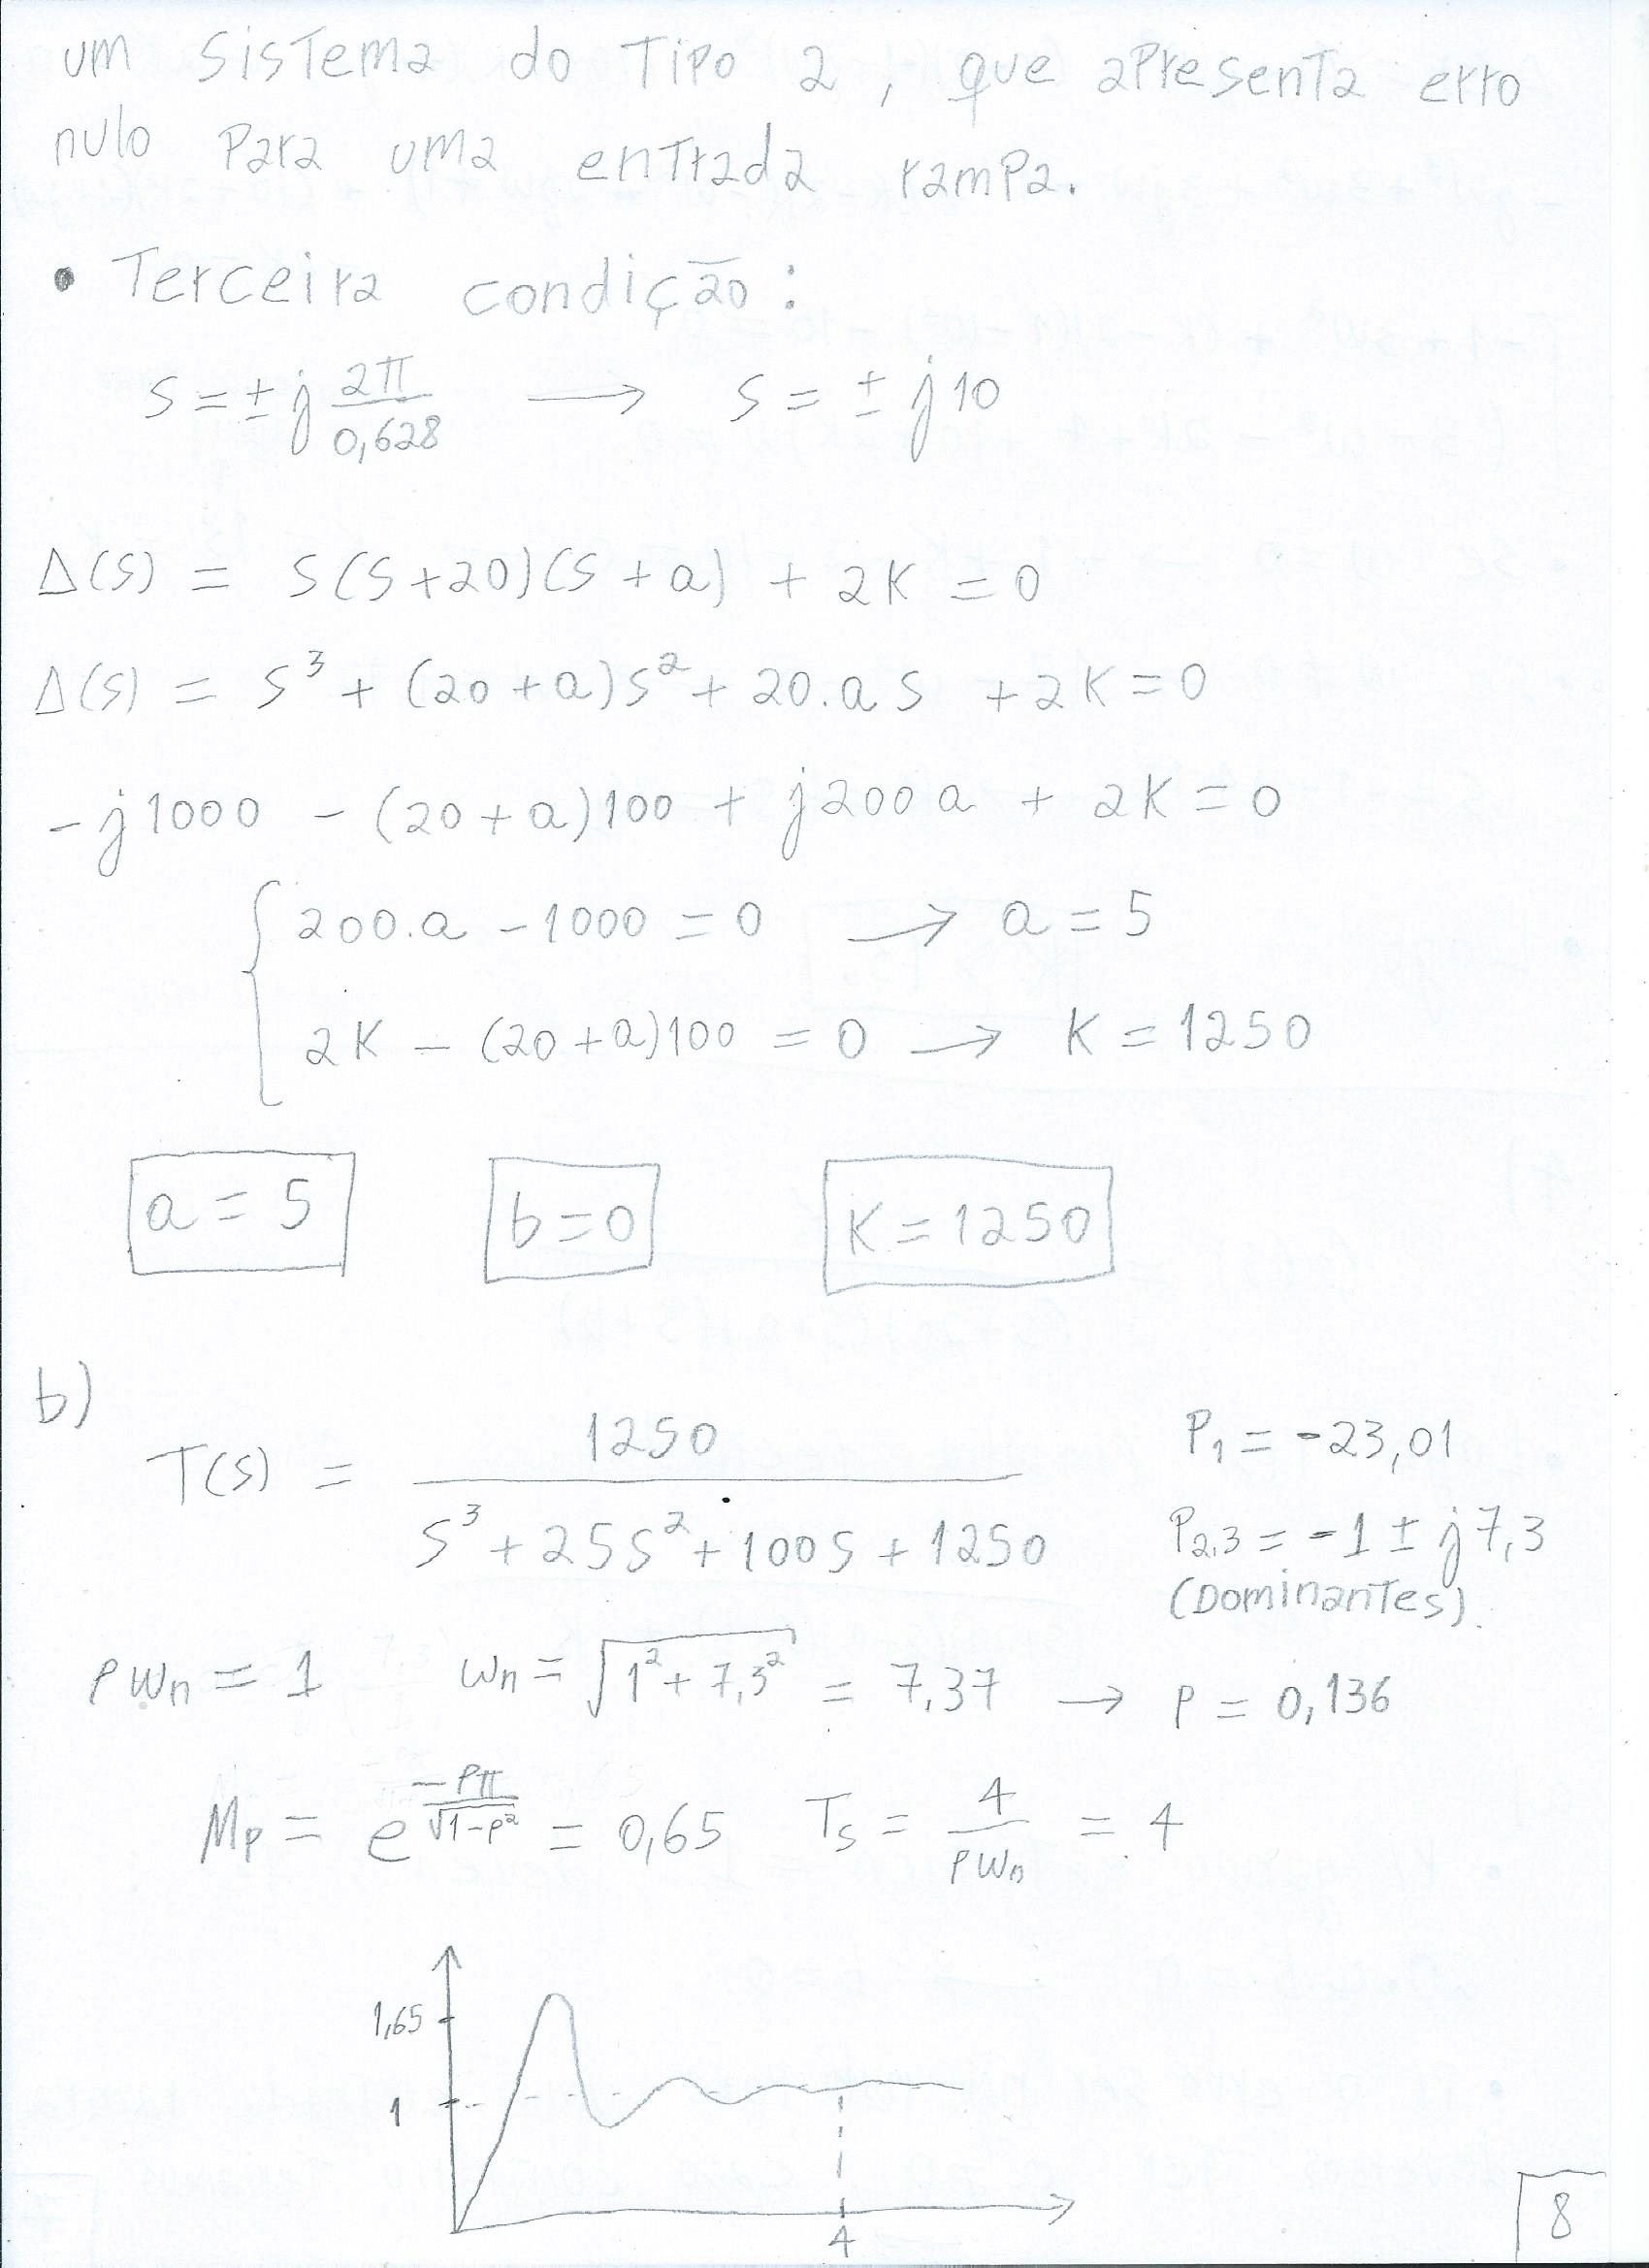 um sistema do tipo 2, que apresenta erro
nulo para uma entrada rampa.
• Terceira condição:
s = ± j 2π/0,628 → s = ± j10
Δ(s) = s(s+20)(s+a) + 2K = 0
Δ(s) = s³ + (20+a)s² + 20.a s + 2K = 0
-j1000 - (20+a)100 + j200a + 2K = 0
{ 200.a - 1000 = 0 → a = 5
2K - (20+a)100 = 0 → K = 1250
a = 5 b = 0 K = 1250
b)
T(s) = 1250 / (s³ + 25s² + 100s + 1250)
P₁ = -23,01
P₂,₃ = -1 ± j7,3
(Dominantes).
ρωn = 1 ωn = √(1² + 7,3²) = 7,37 → ρ = 0,136
Mp = e^(-ρπ/√(1-ρ²)) = 0,65 Ts = 4/ρωn = 4
1,65
1
4
8